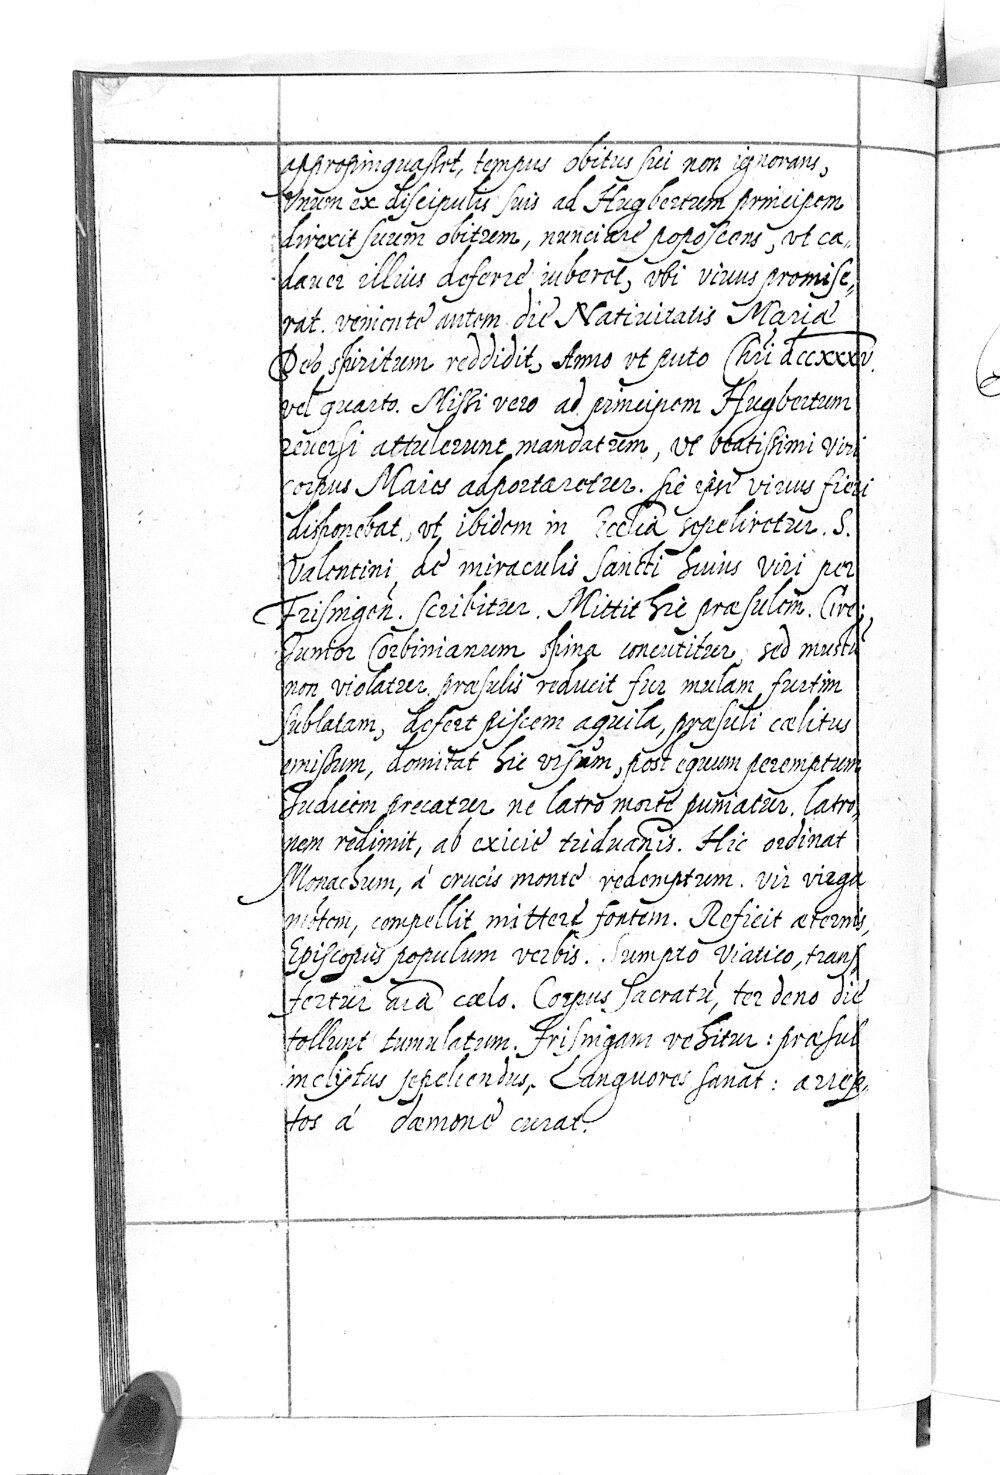 appropinquasset, tempus obitus sui non ignorans,
Vnum ex discipulis suis ad Hugbertum principem
direxit suum obitum, nunciare poposcens, vt ca„
dauer illius deferre iuberet, vbi viuus promise„
rat. veniente autem die Natiuitatis Mariæ
Deo spiritum reddidit, Anno vt puto Chri dccxxxv.
vel quarto. Missi vero ad principem Hugbertum
reuersi attulerunt mandatum, vt beatissimi viri
corpus Maies adportaretur. sic ipse viuus fieri
disponebat, vt ibidem in Ecclia sepeliretur. S.
Valentini, de miraculis sancti huius viri per
Frisingen. scribitur. Mittit hic præsulem.
Junior Corbinianum spina concutitur, sed mustū
non violatur præsulis reducit fur mulam furtim
sublatam, defert piscem aquila, præsuli cælitus
emissum, domitat hic vrsum, post equum peremptum
Judicem precatur ne latro morte puniatur. latro„
nem redimit, ab exicie triduanis. Hic ordinat
Monachum, á crucis monte redemptum. vir virga
mótem, compellit mittere fontem. Reficit æternis,
Episcopus populum verbis. Sumpto Viatico, trans
fertur aīa cælo. Corpus sacratū, ter deno die
tollunt tumulatum. Frisingam vehitur: præsul
inclytus sepeliendus, Languores sanat: arrep„
tos á dæmone curat.